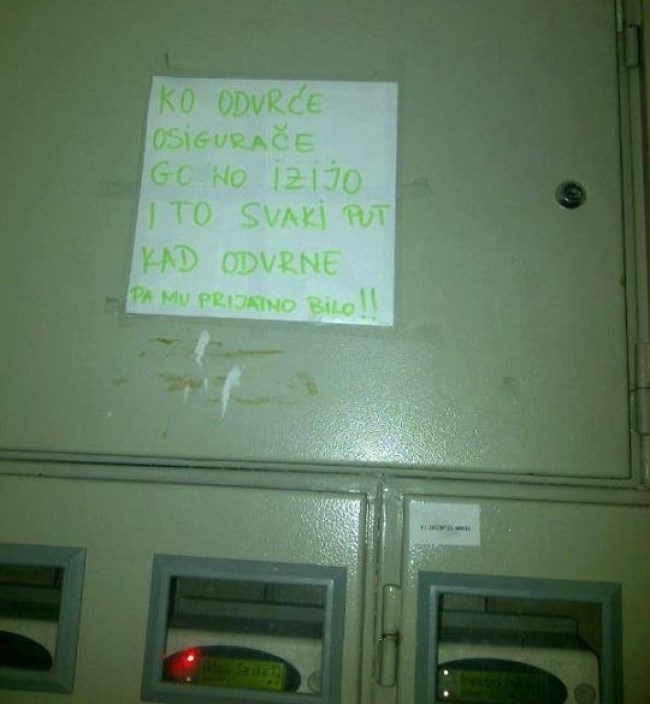 KO ODVRĆE
OSiGURAČE
GO NO iZiJO
I TO SVAKi PUT
KAD ODVRNE
PA MU PRIJATNO BiLO!!